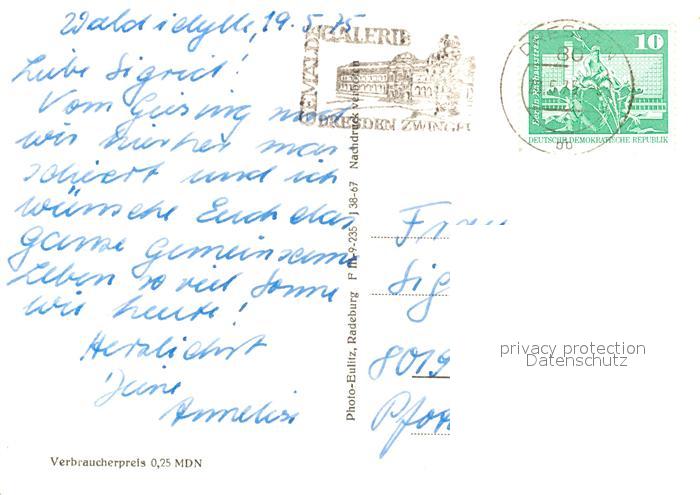 Waldidylle, 19.5.75
Liebe Sigrid!
Vom Geising sind
wir hierher mar
schiert und ich
wünsche Euch das
ganze gemeinsame
Leben so viel Sonne
wie heute!
Herzlichst
Deine
Annelies
Verbraucherpreis 0,25 MDN
Photo-Eulitz, Radeburg F III-9-235 J 38-67 Nachdruck verboten
GEMÄLDEGALERIE
DRESDEN ZWINGER
DRESDEN
80
10
Berlin, Rathausstraße
DEUTSCHE DEMOKRATISCHE REPUBLIK
Frau
Sig
8019
privacy protection
Datenschutz